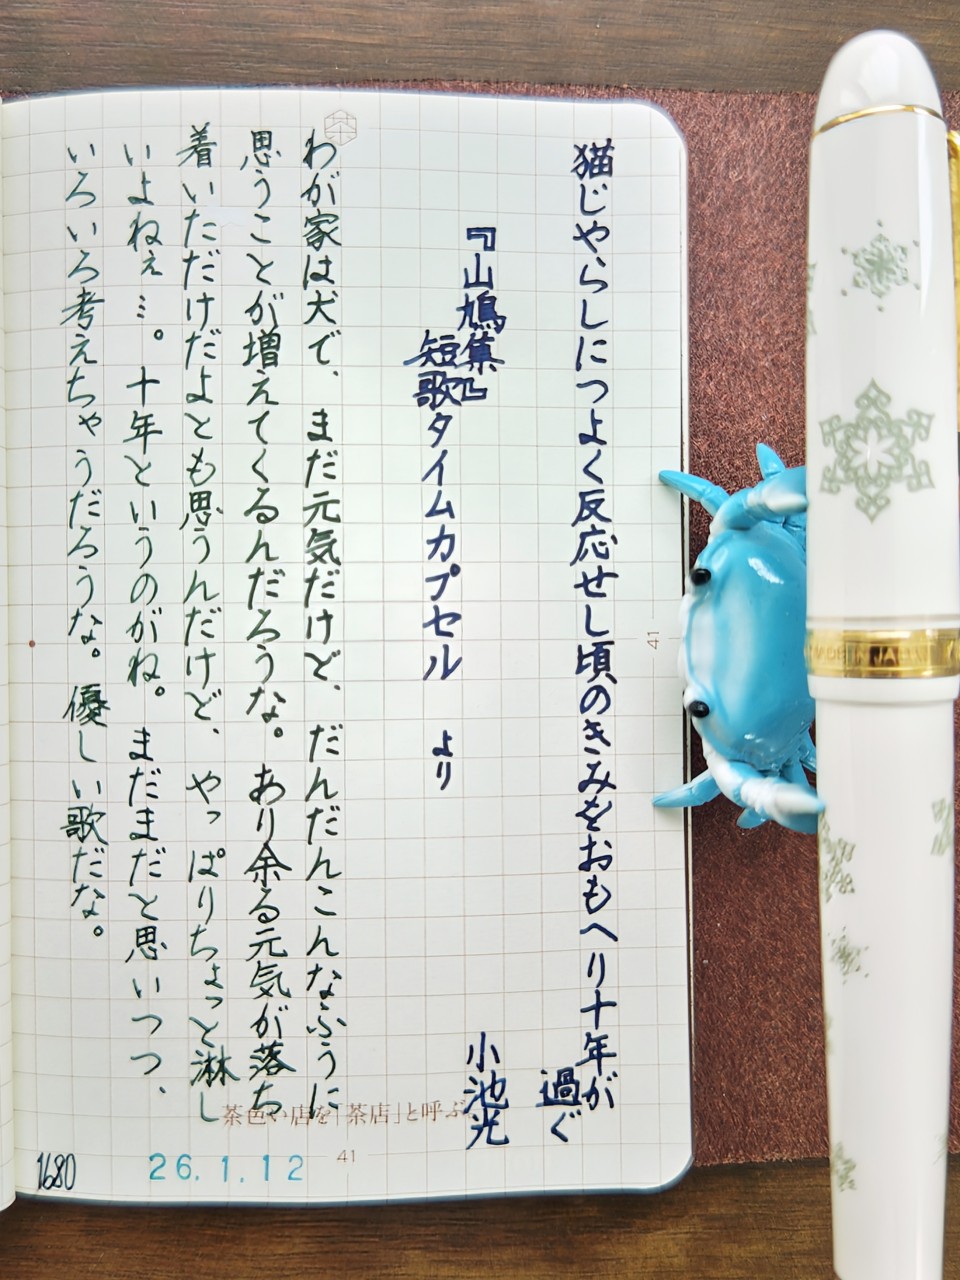 猫じゃらしにつよく反応せし頃のきみをおもへり十年が
過ぐ
小池光
『山鳩集』
短歌タイムカプセル　より
わが家は犬で、まだ元気だけど、だんだんこんなふうに
思うことが増えてくるんだろうな。あり余る元気が落ち
着いただけだよとも思うんだけど、やっぱりちょっと淋し
いよねぇ…。十年というのがね。まだまだと思いつつ、
いろいろ考えちゃうだろうな。優しい歌だな。
茶色い店を「茶店」と呼ぶ
41
41
26.1.12
1680